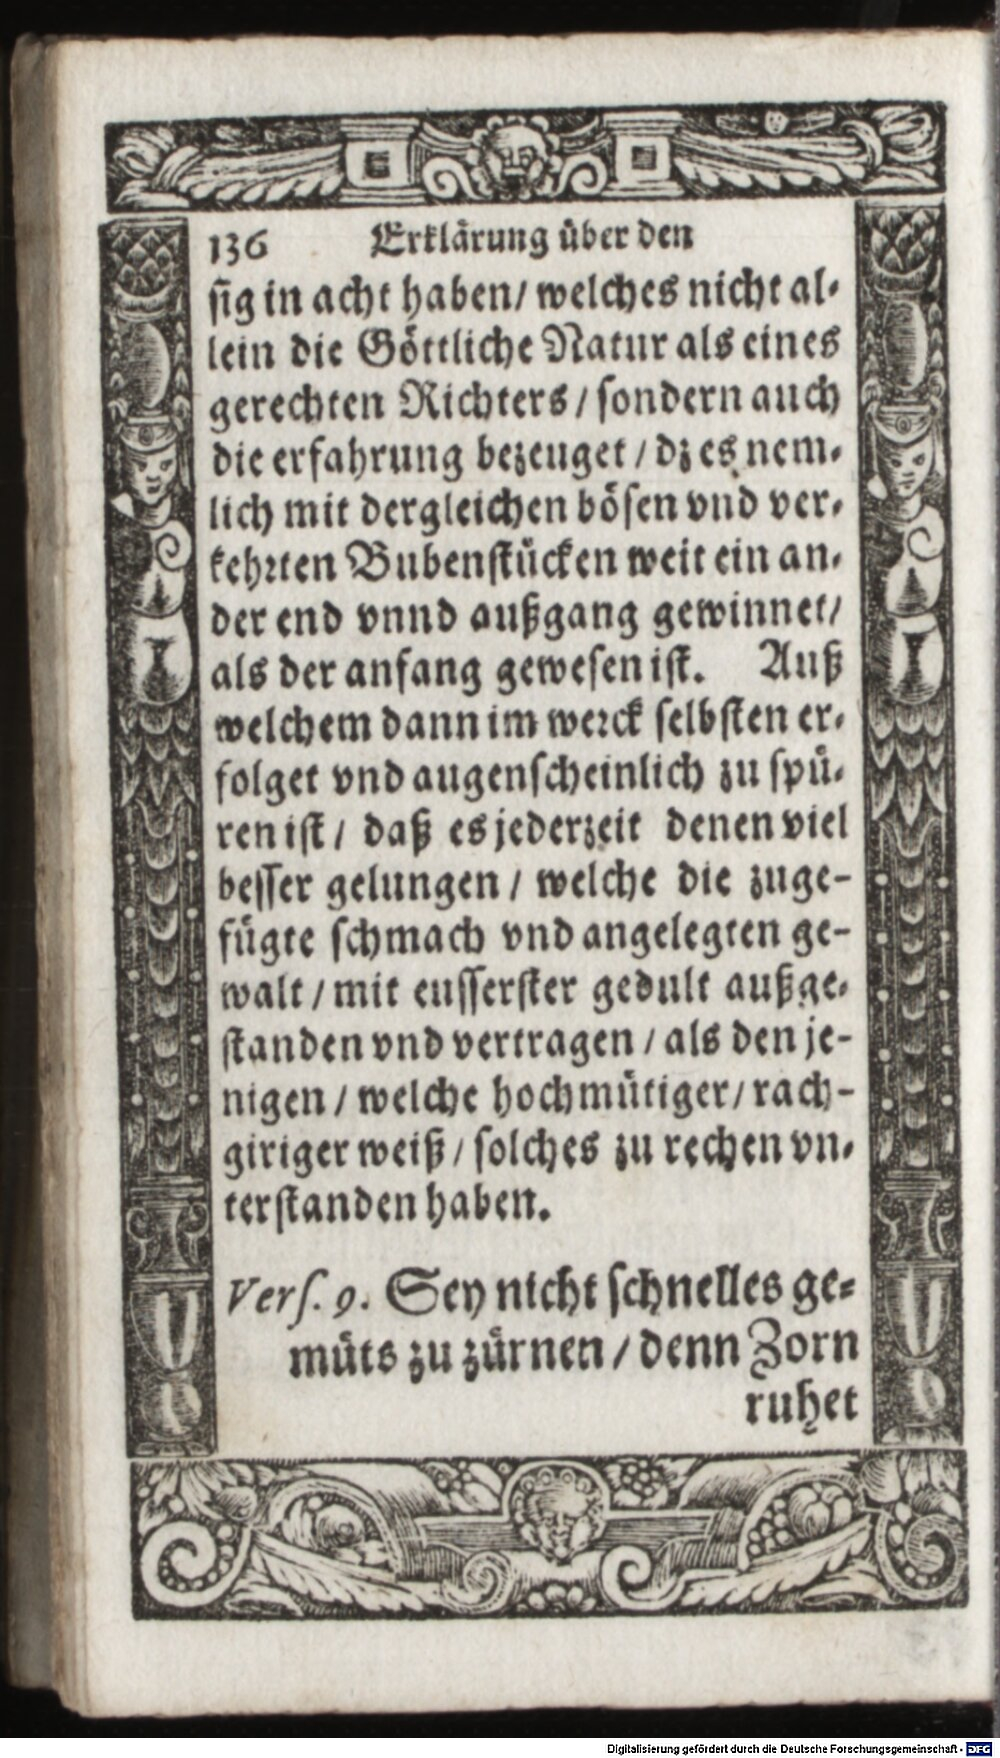 136 Erklärung über den
sig in acht haben/ welches nicht al-
lein die Göttliche Natur als eines
gerechten Richters / sondern auch
die erfahrung bezeuget / dz es nem-
lich mit dergleichen bösen vnd ver-
kehrten Bubenstücken weit ein an-
der end vnnd außgang gewinnet/
als der anfang gewesen ist. Auß
welchem dann im werck selbsten er-
folget vnd augenscheinlich zu spü-
ren ist / daß es jederzeit denen viel
besser gelungen / welche die zuge-
fügte schmach vnd angelegten ge-
walt / mit eusserster gedult außge-
standen vnd vertragen / als den je-
nigen / welche hochmütiger/ rach-
giriger weiß / solches zu rechen vn-
terstanden haben.
Vers. 9. Sey nicht schnelles ge-
müts zu zürnen / denn Zorn
ruhet
Digitalisierung gefördert durch die Deutsche Forschungsgemeinschaft - DFG